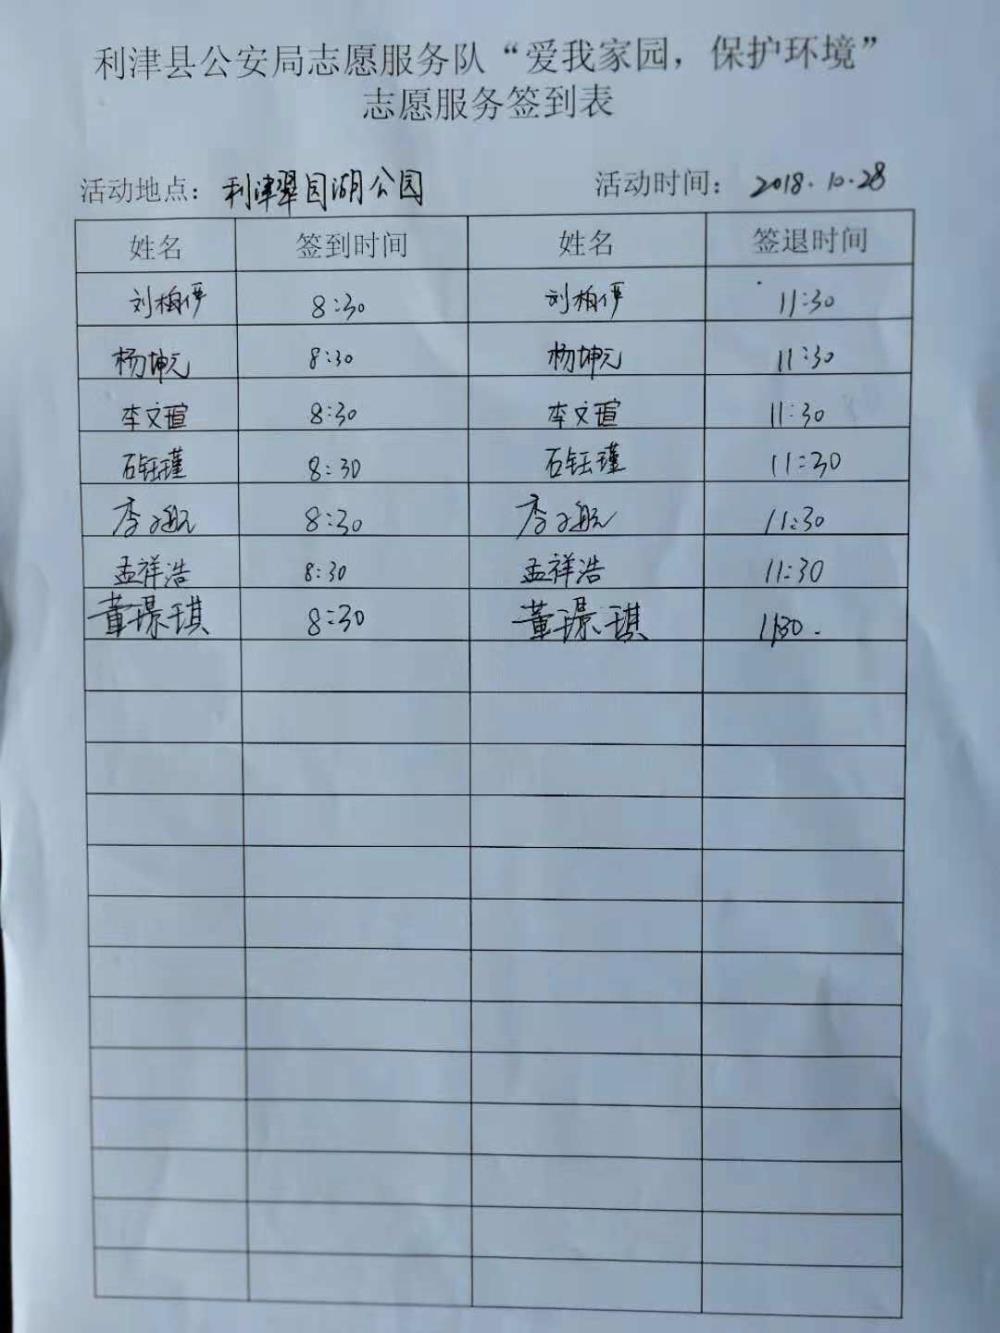 利津县公安局志愿服务队“爱我家园，保护环境”
志愿服务签到表
活动地点：利津翠园湖公园 活动时间：2018.10.28
姓名 签到时间 姓名 签退时间
8:30 11:30
杨坤元 8:30 杨坤元 11:30
李文瑄 8:30 李文瑄 11:30
石钰瑾 8:30 石钰瑾 11:30
李子航 8:30 李子航 11:30
孟祥浩 8:30 孟祥浩 11:30
董璟琪 8:30 董璟琪 11:30.